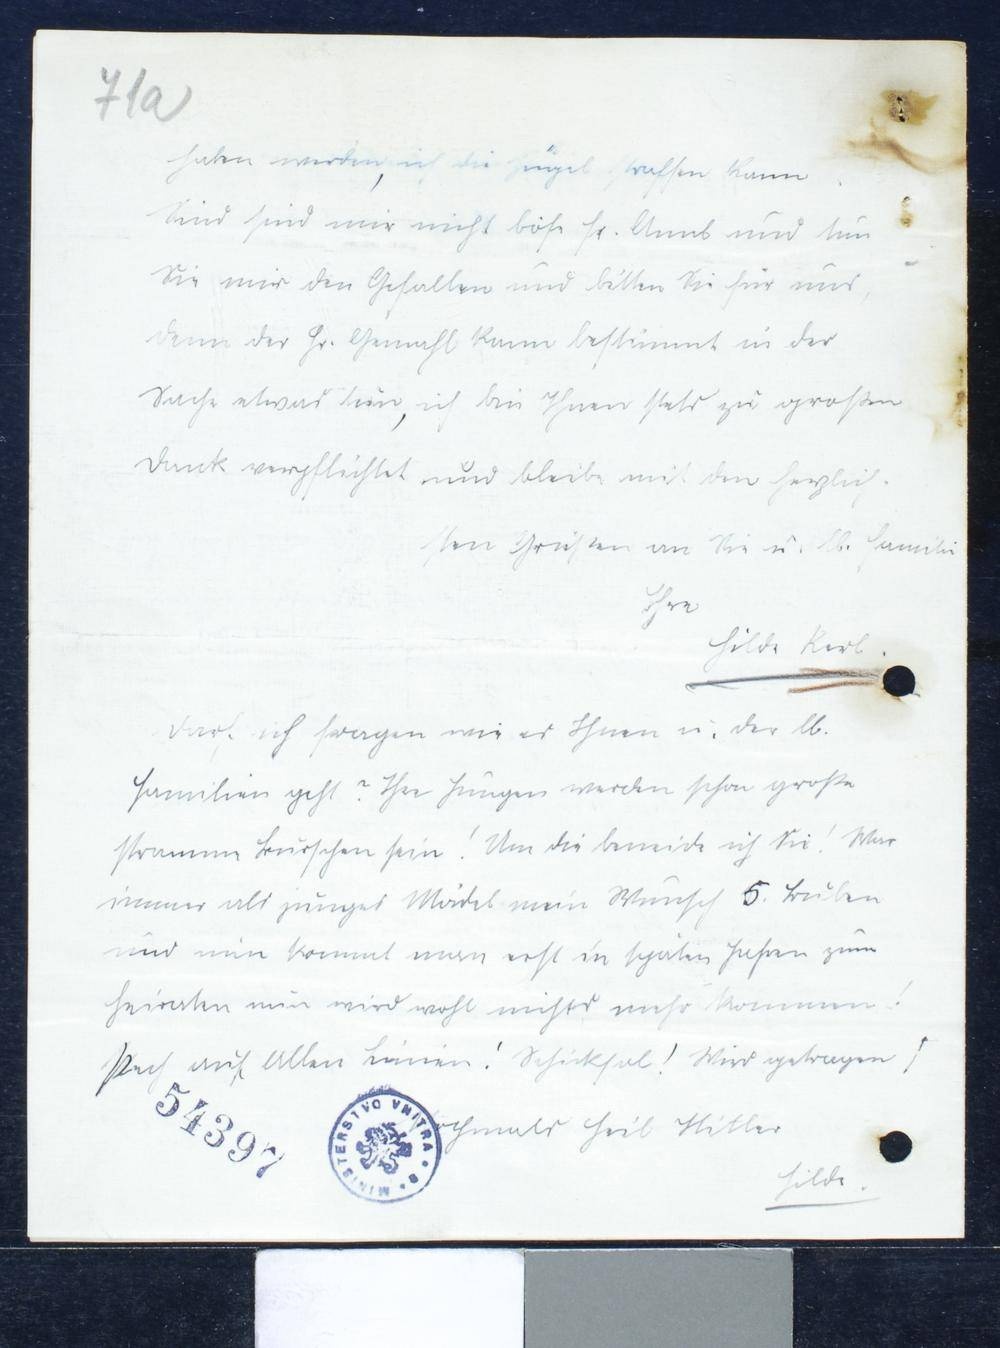 71a
haben werden, ich die Zügel straffen kann.
Sind sind mir nicht böse Fr. Anns und tun
Sie mir den Gefallen und bitten Sie für uns,
denn der Hr. Gemahl kann bestimmt in der
Sache etwas tun, ich bin Ihnen stets zu großen
Dank verpflichtet und bleibe mit den herzlich-
sten Grüßen an Sie u. lb. Familie
Ihre
Hilde Kerl.
Darf ich fragen wie es Ihnen u. der lb.
Familien geht? Ihre Jungen werden schon große
stramme Burschen sein! Um die beneide ich Sie! War
immer als junges Mädel mein Wunsch 5. Buben
und nun kommt man erst in späten Jahren zum
heiraten nun wird wohl nichts mehr kommen!
Pech auf allen Linien! Schicksal! Wird getragen!
Nochmals Heil Hitler
Hilde.
54397
MINISTERSTVO VNITRA